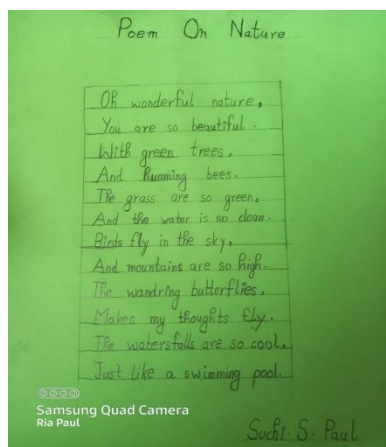 Poem On Nature
Oh wonderful nature,
You are so beautiful.
With green trees,
And Humming bees.
The grass are so green,
And the water is so clean.
Birds fly in the sky,
And mountains are so high.
The wandring butterflies,
Makes my thoughts fly.
The watersfalls are so cool.
Just like a swimming pool.
Samsung Quad Camera
Ria Paul
Suchi-S-Paul